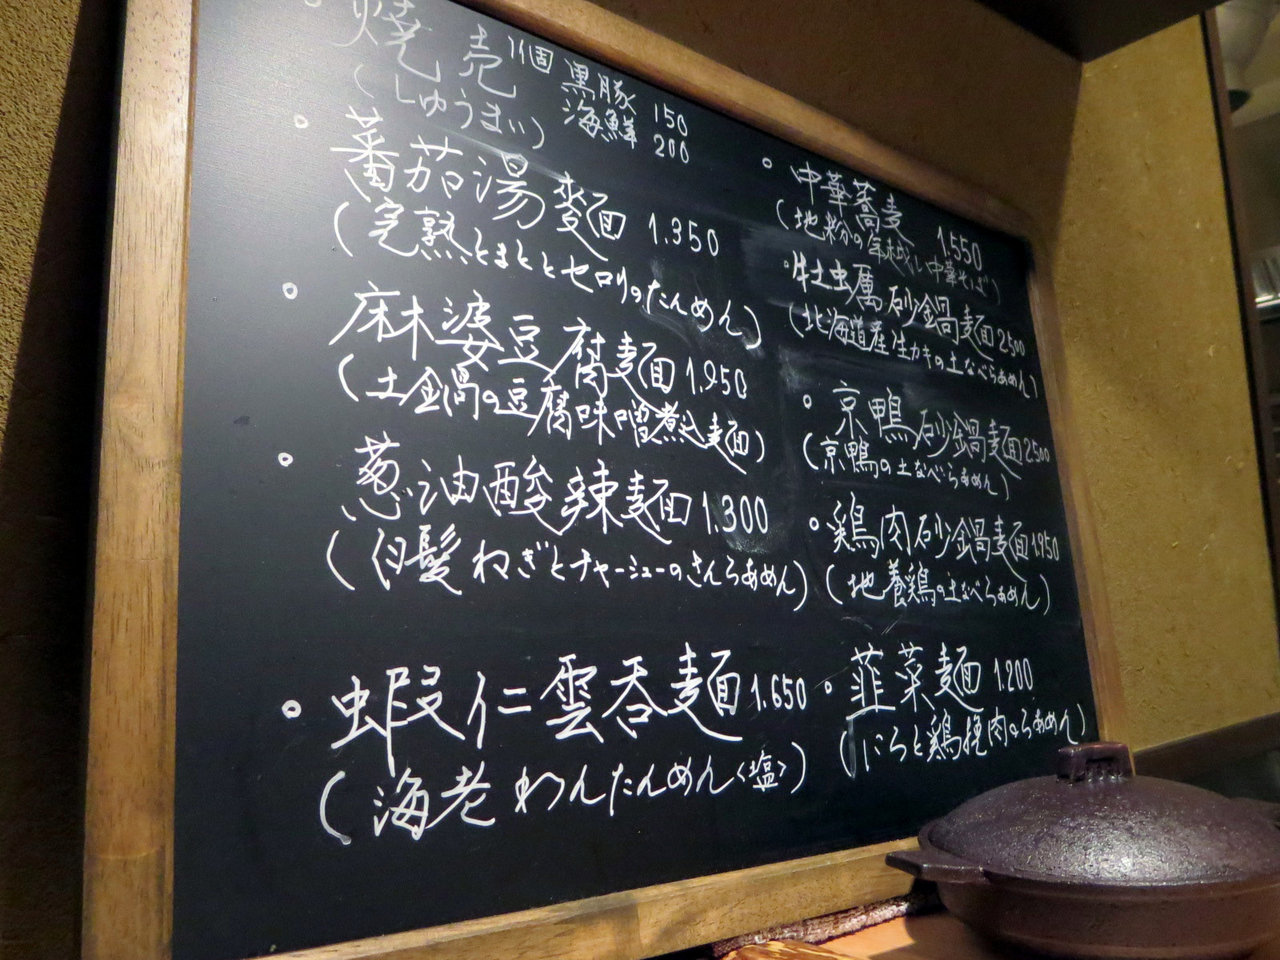 燒売 1個 黒豚 150
海鮮 200
(しゅうまい)
蕃茄湯麺 1.350
(完熟とまととセロリのたんめん)
麻婆豆腐麺 1.950
(土鍋の豆腐味噌煮込麺)
葱油酸辣麺 1.300
(白髪ねぎとチャーシューのさんらあめん)
蝦仁雲呑麺 1.650
(海老わんたんめん<塩>)
中華蕎麦 1,550
(地粉の年越し中華そば)
牡蛎砂鍋麺 2500
(北海道産生カキの土なべらあめん)
京鴨砂鍋麺 2500
(京鴨の土なべらあめん)
鶏肉砂鍋麺 1950
(地養鶏の土なべらあめん)
韮菜麺 1.200
(にらと鶏挽肉のらあめん)